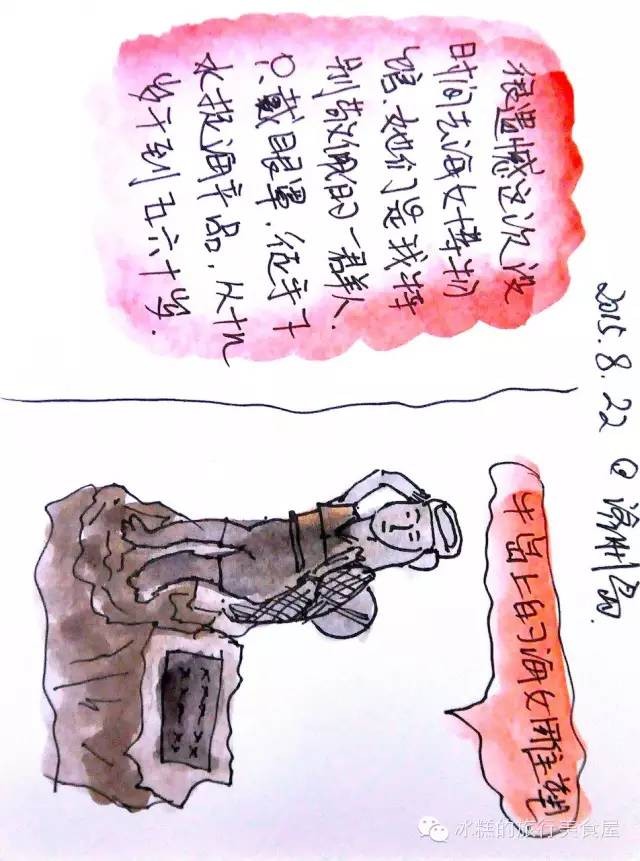 2015.8.22 @ 济州岛.
很遗憾这次没
时间去海女博物
馆.她们是我特
别敬佩的一群人.
只戴眼罩,徒手下
水捉海产品,从十几
岁干到五六十岁.
牛岛上的海女雕塑
冰糕的旅行美食屋